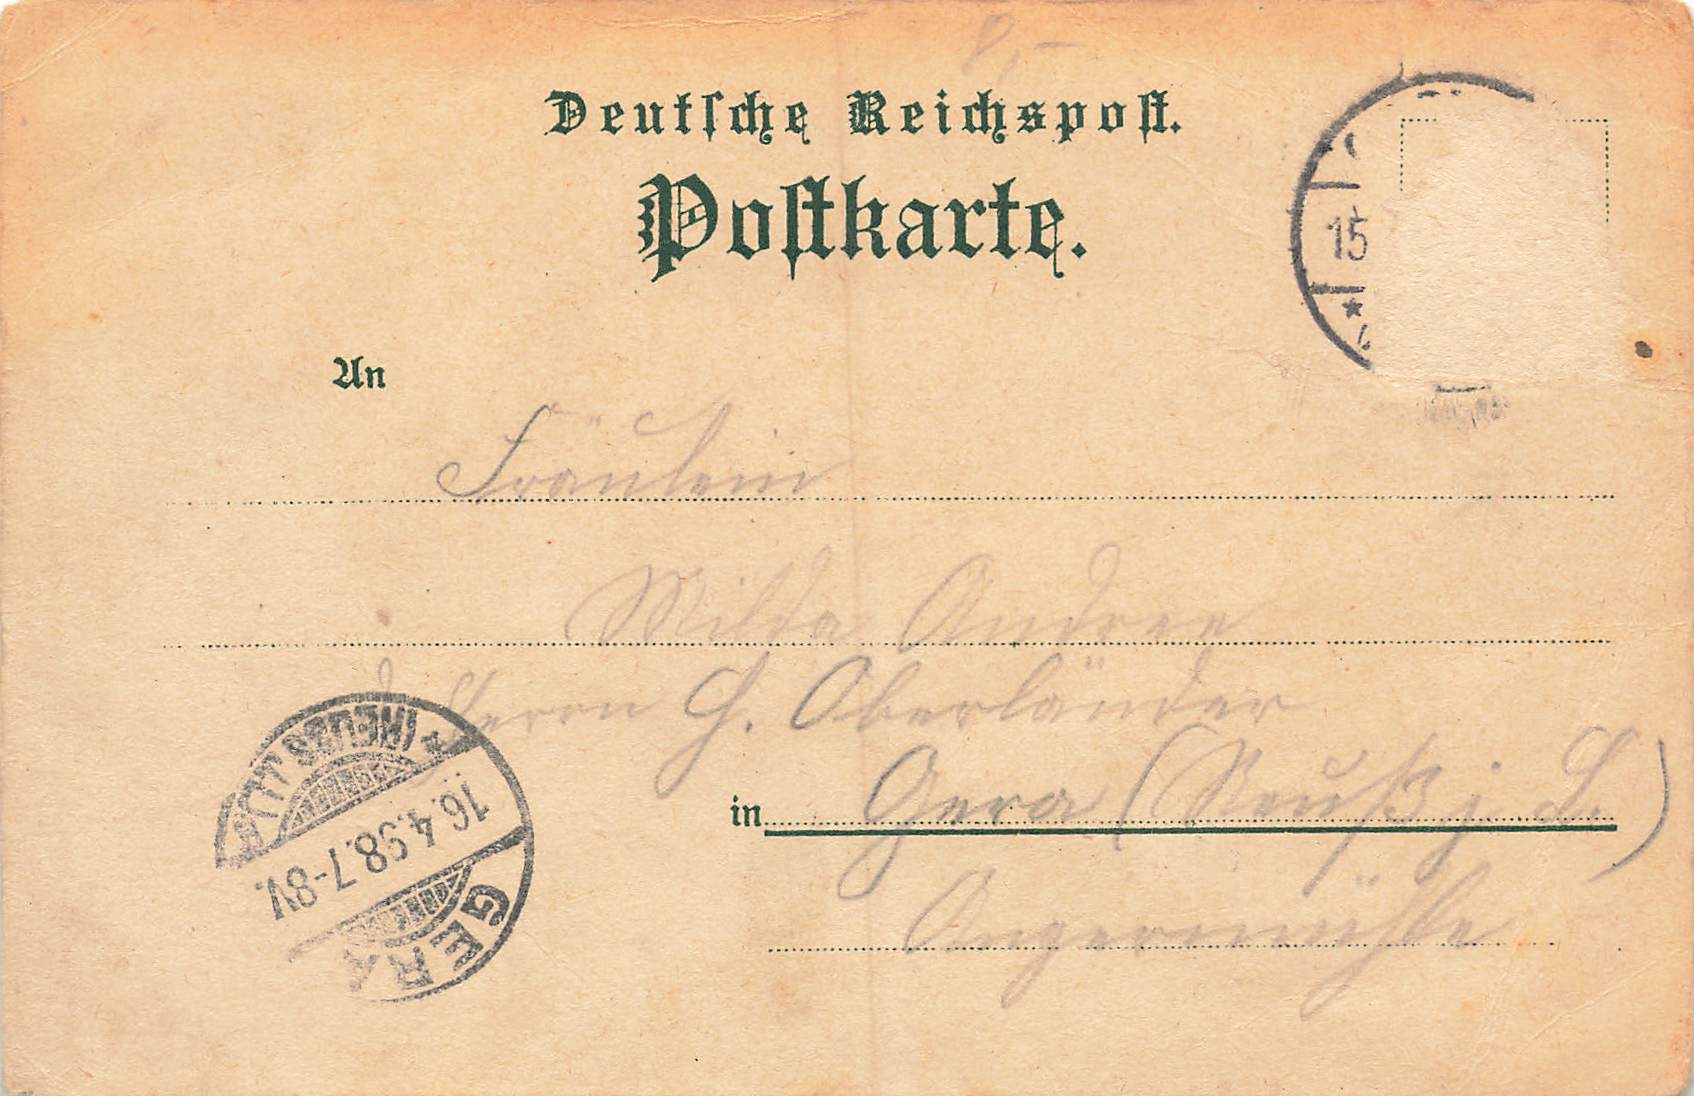 8,-
Deutsche Reichspost.
Postkarte.
15
An
Fräulein
Milda Andree
d. Herrn H. Oberländer
in Gera (Reuß j. L.)
Angermühle
GERA
16.4.98.7-8V.
* (REUSS